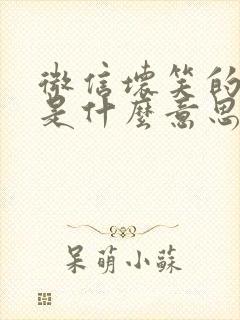 微信壞笑的
是什麼意思
呆萌小蘇